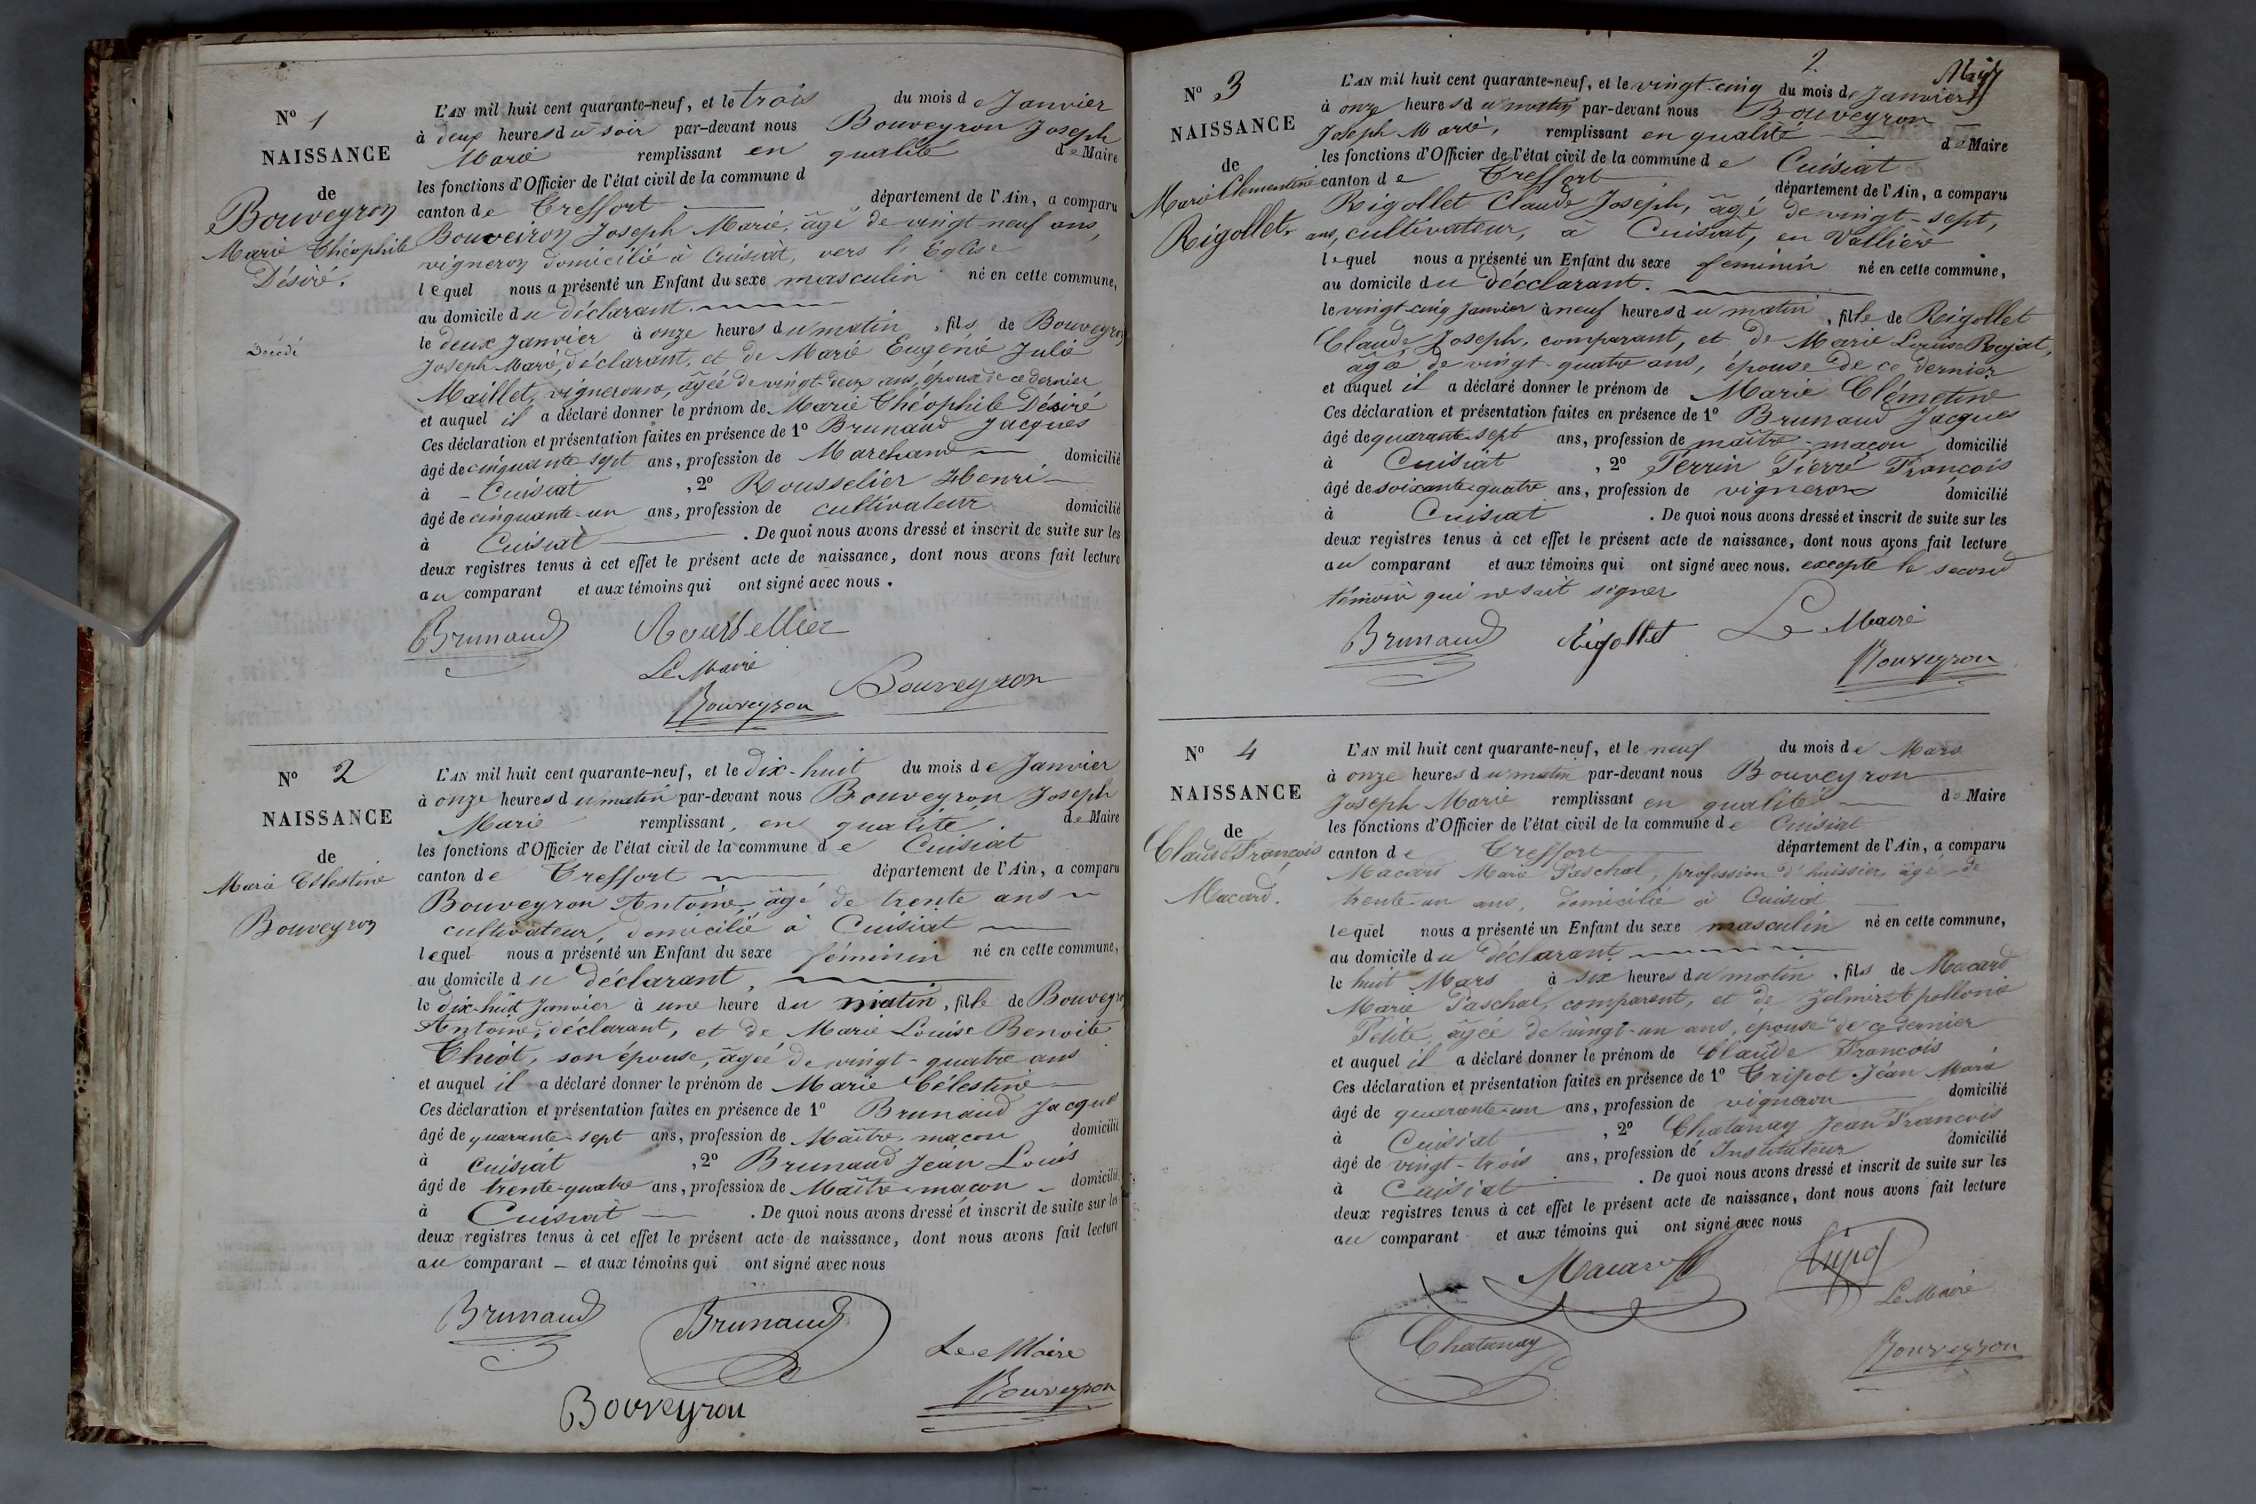 N° 1
NAISSANCE
de
Bouveyron
Marie Théophile
Désiré.
Décédé
L'AN mil huit cent quarante-neuf, et le trois du mois de Janvier
à deux heures du soir par-devant nous Bouveyron Joseph
Marie remplissant en qualité de Maire
les fonctions d'Officier de l'état civil de la commune d
canton de Treffort département de l'Ain, a comparu
Bouveiron Joseph Marie, âgé de vingt-neuf ans,
vigneron domicilié à Cuisiat, vers l'Eglise
lequel nous a présenté un Enfant du sexe masculin né en cette commune,
au domicile du déclarant.
le deux Janvier à onze heures du matin, fils de Bouveyron
Joseph Marie, déclarant, et de Marie Eugénie Julie
Maillet, vigneronne, âgée de vingt-deux ans, épouse de ce dernier
et auquel il a déclaré donner le prénom de Marie Théophile Désiré
Ces déclaration et présentation faites en présence de 1° Brunaud Jacques
âgé de cinquante sept ans, profession de Marchand domicilié
à Cuisiat, 2° Rousselier Henri
âgé de cinquante-un ans, profession de cultivateur domicilié
à Cuisiat. De quoi nous avons dressé et inscrit de suite sur les
deux registres tenus à cet effet le présent acte de naissance, dont nous avons fait lecture
au comparant et aux témoins qui ont signé avec nous.
Brunaud Rousellier
Le Maire
Bouveyron Bouveyron
N° 2
NAISSANCE
de
Marie Célestine
Bouveyron
L'AN mil huit cent quarante-neuf, et le dix-huit du mois de Janvier
à onze heures du matin par-devant nous Bouveyron Joseph
Marie remplissant, en qualité de Maire
les fonctions d'Officier de l'état civil de la commune de Cuisiat
canton de Treffort département de l'Ain, a comparu
Bouveyron Antoine, âgé de trente ans
cultivateur, domicilié à Cuisiat
lequel nous a présenté un Enfant du sexe féminin né en cette commune,
au domicile du déclarant,
le dix-huit Janvier à une heure du matin, fille de Bouveyron
Antoine, déclarant, et de Marie Louise Benoite
Chiot, son épouse, âgée de vingt-quatre ans
et auquel il a déclaré donner le prénom de Marie Célestine
Ces déclaration et présentation faites en présence de 1° Brunaud Jacques
âgé de quarante-sept ans, profession de Maître-maçon domicilié
à Cuisiat, 2° Brunaud Jean Louis
âgé de trente-quatre ans, profession de Maître-maçon domicilié
à Cuisiat. De quoi nous avons dressé et inscrit de suite sur les
deux registres tenus à cet effet le présent acte de naissance, dont nous avons fait lecture
au comparant et aux témoins qui ont signé avec nous
Brunaud Brunaud
Le Maire
Bouveyron Bouveyron
2.
N° 3
NAISSANCE
de
Marie Clementine
Rigollet.
L'AN mil huit cent quarante-neuf, et le vingt-cinq du mois de Janvier
à onze heures du matin par-devant nous Bouveyron
Joseph Marie, remplissant en qualité de Maire
les fonctions d'Officier de l'état civil de la commune de Cuisiat
canton de Treffort département de l'Ain, a comparu
Rigollet Claude Joseph, âgé de vingt-sept,
ans, cultivateur, à Cuisiat, en Vallière
lequel nous a présenté un Enfant du sexe feminin né en cette commune,
au domicile du décclarant.
le vingt-cinq Janvier à neuf heures du matin, fille de Rigollet
Claude Joseph, comparant, et de Marie Louise Rojat,
âgé de vingt-quatre ans, épouse de ce dernier
et auquel il a déclaré donner le prénom de Marie Clémetine
Ces déclaration et présentation faites en présence de 1° Brunaud Jacques
âgé de quarante-sept ans, profession de maître-maçon domicilié
à Cuisiat, 2° Perrin Pierre François
âgé de soixante-quatre ans, profession de vigneron domicilié
à Cuisiat. De quoi nous avons dressé et inscrit de suite sur les
deux registres tenus à cet effet le présent acte de naissance, dont nous avons fait lecture
au comparant et aux témoins qui ont signé avec nous. excepté le second
témoin qui ne sait signer
Brunaud Rigollet Le Maire
Bouveyron
N° 4
NAISSANCE
de
Claude François
Macard.
L'AN mil huit cent quarante-neuf, et le neuf du mois de Mars
à onze heures du matin par-devant nous Bouveyron
Joseph Marie remplissant en qualité de Maire
les fonctions d'Officier de l'état civil de la commune de Cuisiat
canton de Treffort département de l'Ain, a comparu
Macard Marie Paschal, profession d'huissier, âgé de
trente-un ans, domicilié à Cuisiat
lequel nous a présenté un Enfant du sexe masculin né en cette commune,
au domicile du déclarant
le huit Mars à six heures du matin, fils de Macard
Marie Paschal, comparent, et de Zelmire Apollonie
Petite, âgée de vingt-un ans, épouse de ce dernier
et auquel il a déclaré donner le prénom de Claude François
Ces déclaration et présentation faites en présence de 1° Tripot Jean Marie
âgé de quarante-un ans, profession de vigneron domicilié
à Cuisiat, 2° Chatanay Jean François
âgé de vingt-trois ans, profession de Instituteur domicilié
à Cuisiat. De quoi nous avons dressé et inscrit de suite sur les
deux registres tenus à cet effet le présent acte de naissance, dont nous avons fait lecture
au comparant et aux témoins qui ont signé avec nous
Macard Tripot
Le Maire
Chatanay Bouveyron